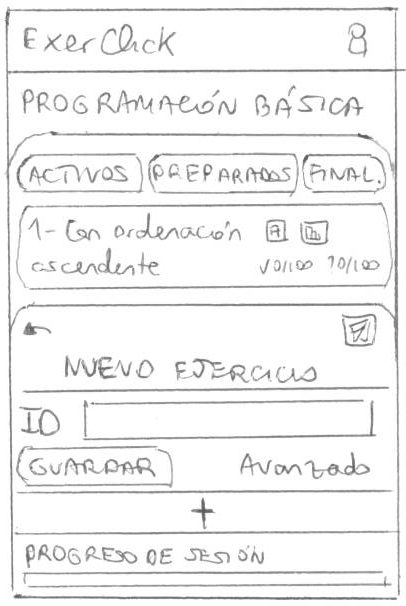 ExerClick
PROGRAMACIÓN BÁSICA
ACTIVOS PREPARADOS FINAL.
1- Con ordenación A
ascendente √0/100 ?0/100
NUEVO EJERCICIO
ID
GUARDAR Avanzado
+
PROGRESO DE SESIÓN